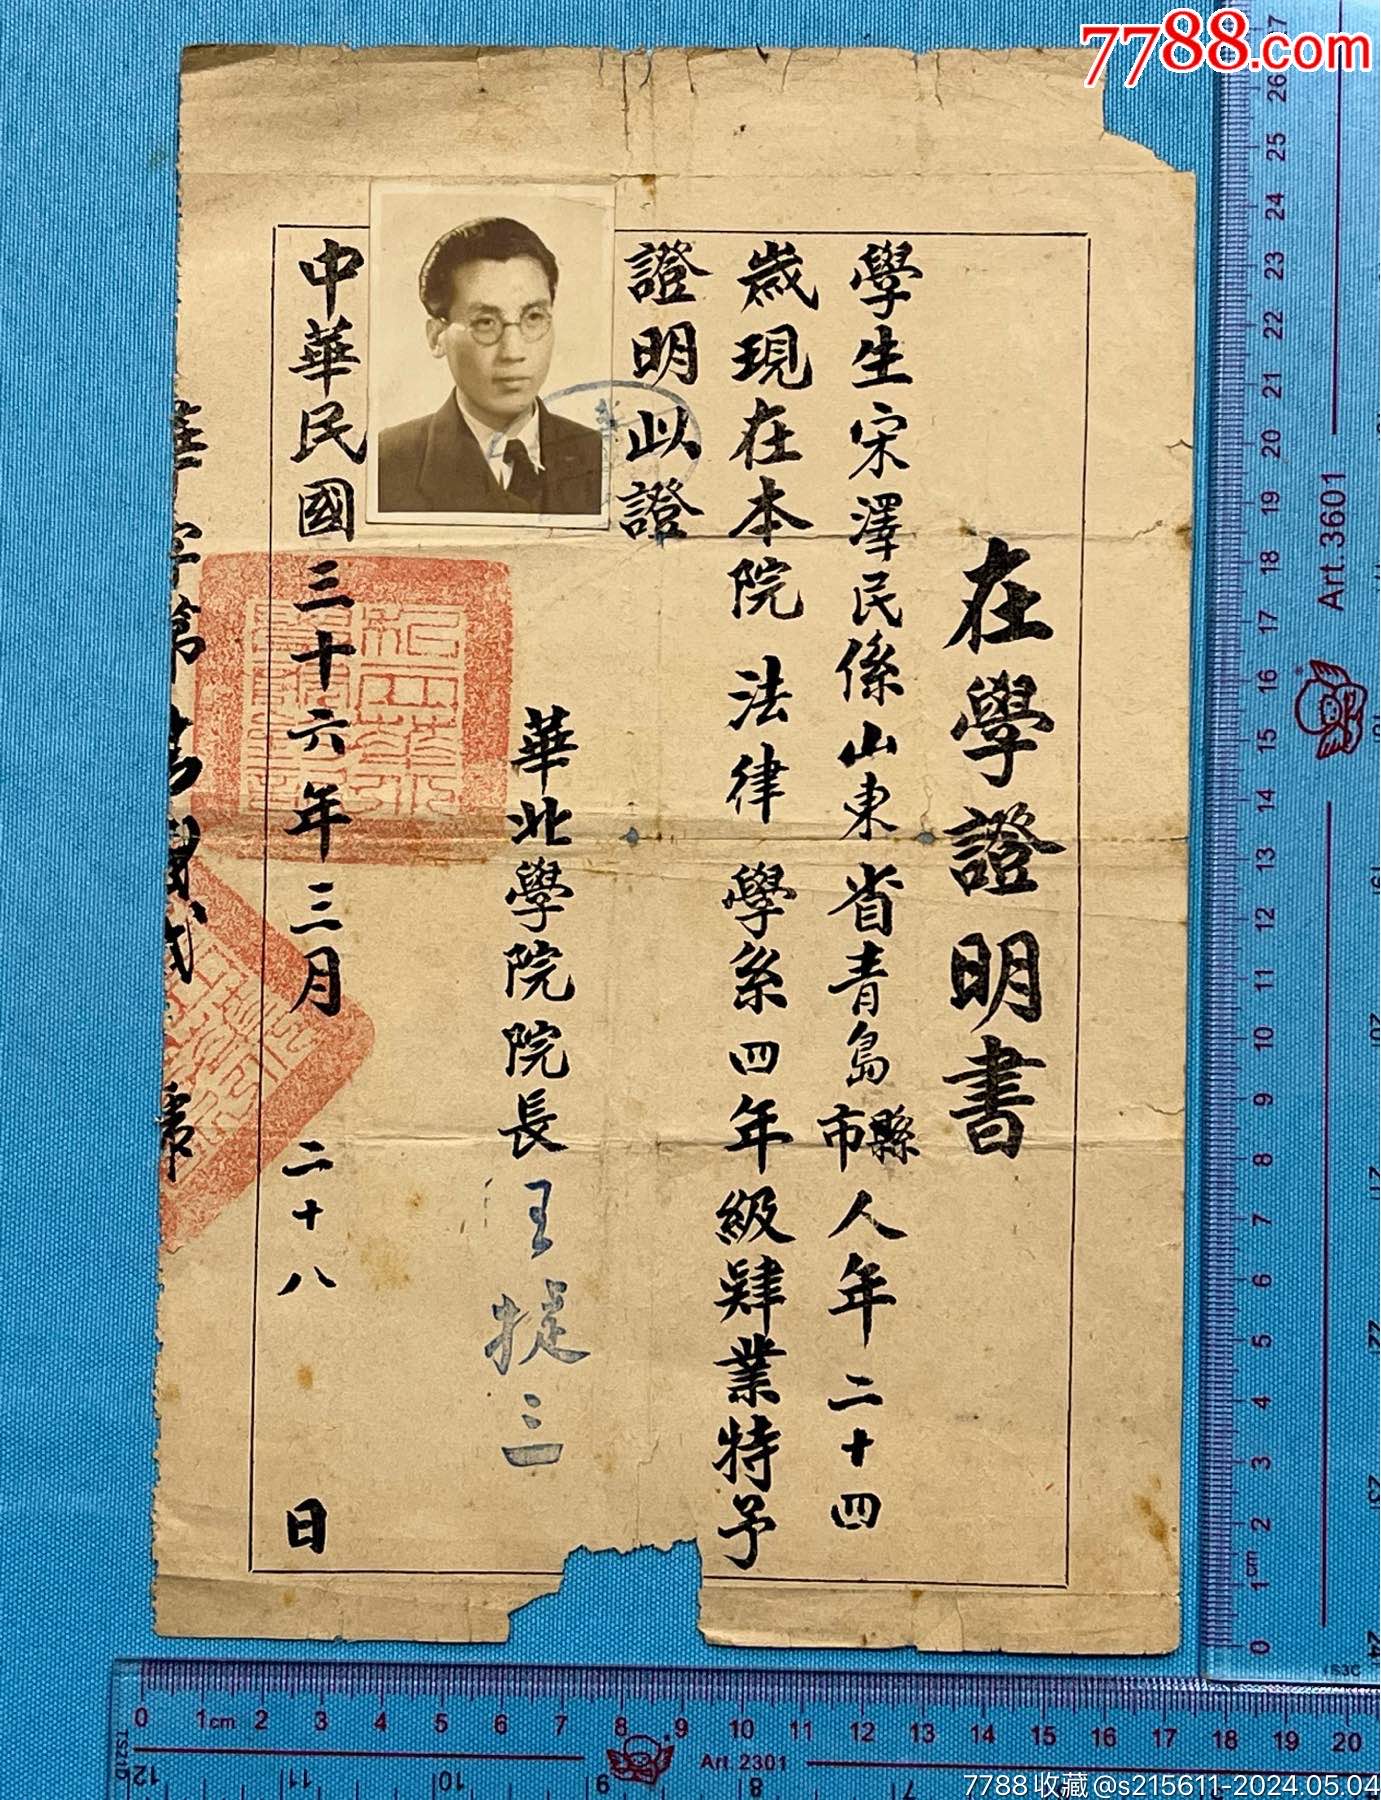 7788.com
在學證明書
學生宋澤民係山東省青島縣市人年二十四
歲現在本院法律學系四年級肄業特予
證明此證
華北學院院長王捷三
中華民國三十六年三月二十八日
華字第
Art.3601
Art. 2301
7788收藏@s215611-2024.05.04